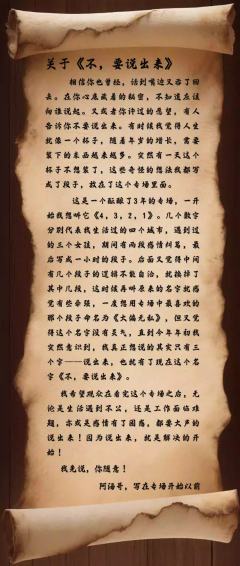 关于《不，要说出来》
相信你也曾经，话到嘴边又吞了回
去。在你心底藏着的秘密，不知道在该
向谁说起。又或者你许过的愿望，有人
告诉你不要说出来。有时候我觉得人生
就像一个杯子，随着年岁的增长，需要
装下的东西越来越多。突然有一天这个
杯子不想装了，这些奇怪的想法我都写
成了段子，放在了这个专场里面。
这是一个酝酿了3年的专场，一开
始我想叫它《4，3，2，1》。几个数字
分别代表我生活过的四个城市，遇到过
的三个女孩，期间有两段感情纠葛，最
后写成一小时的段子。后面又觉得中间
有几个段子的逻辑不能自洽，就换掉了
其中几段，这时候再听原来的名字就感
觉有些牵强，一度想用专场中最喜欢的
那个段子命名为《大偏无私》，但又觉
得这个名字没有灵气，直到今年年初我
突然意识到，我真正想说的其实只有三
个字——说出来，也就有了现在这个名
字《不，要说出来》。
我希望观众在看完这个专场之后，无
论是生活遇到不公，还是工作面临难
题，亦或是感情有了困惑，都要大声的
说出来！因为说出来，就是解决的开
始！
我先说，你随意！
阿海哥，写在专场开始以前